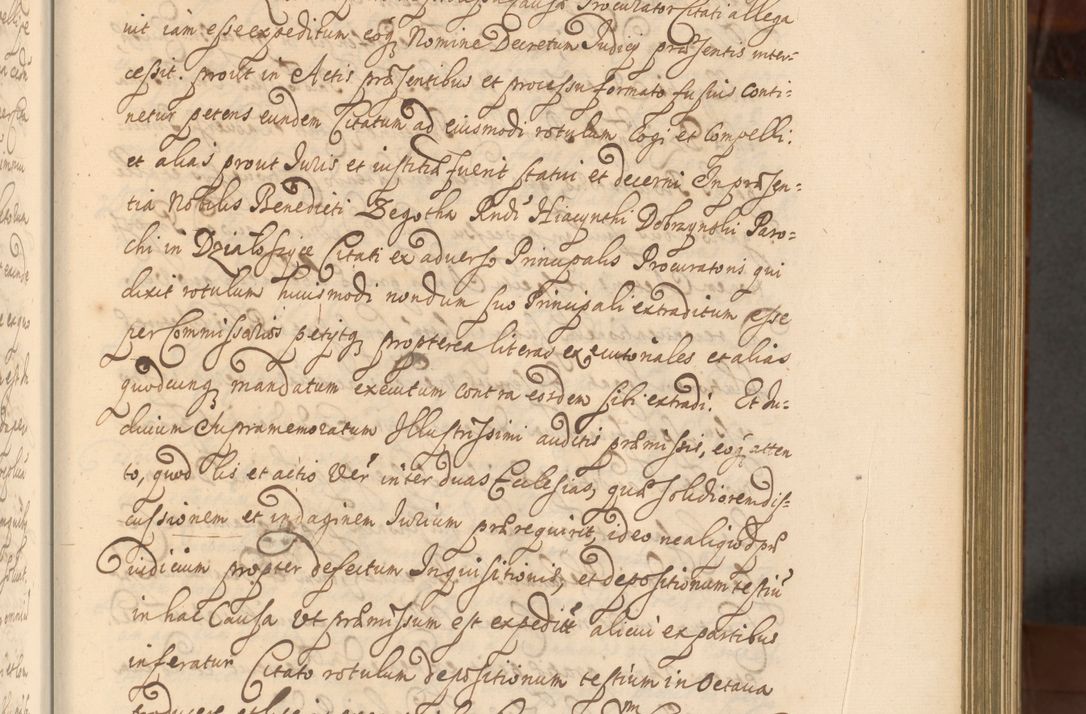 Procurator Citati allega
vit iam esse expeditum eoq Nomine Decretum Judicij præsentis inter-
cessit. prout in Actis præsentibus et processu formato fusius conti-
netur petens eundem Citatum ad eiusmodi rotulum Cogi et Compelli.
et alias prout Iuris et iustitiæ fuerit statui et decerni In præsen-
tia Nobilis Benedicti Zegotha Rndi Hiacynthi Dobrzynski Paro-
chi in Dzialoszyce Citati ex adverso Principalis Procuratoris qui
dixit rotulum huiusmodi nondum suo Principali extraditum esse
per Commissarios petijtq propterea literas executoriales et alias
quodcunq mandatum executum contra eosdem sibi extradi. Et Iu-
dicium Supramemoratum Illustrissimi auditis præmissis, eoq atten
to, quod lis et actio Ver inter duas Ecclesias, quæ solidiorem dis-
cussionem et indaginem Iurium præ requirit, ideo ne aliqod præ
iudicium propter defectum Inquisitionis, et depositionum testiu
in hac Causa Vt præmissum est expedite alicui ex partibus
inferatur Citato rotulum depositionum testium in Octava